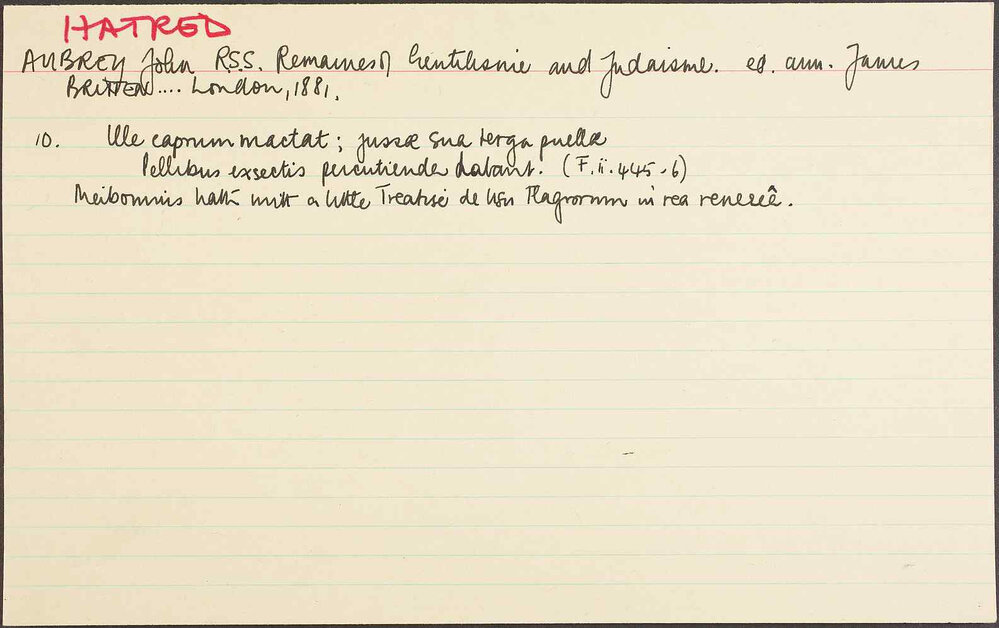 HATRED
AUBREY John R.S.S. Remaines of Gentilisme and Judaisme. ed. ann. James
BRITTEN .... London, 1881.
10. Ille caprum mactat; jussæ sua terga puellæ
Pellibus exsectis percutienda dabant. (F. ii. 445-6)
Meibomius hath writt a little Treatise de Usu Flagrorum in rea venereâ.